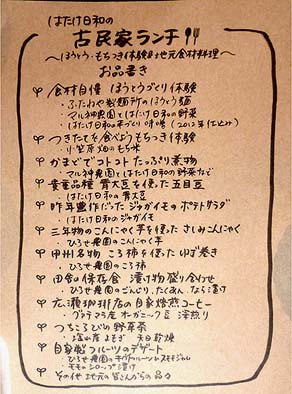 はたけ日和の
古民家ランチ
〜ほうとう・もちつき体験&地元食材料理〜
お品書き
食材自慢 ほうとうづくり体験
・ふたねや製麺所のほうとう麺
・マル神農園とはたけ日和の野菜
・はたけ日和の手づくり味噌（2012年仕込み）
つきたてを食べようもちつき体験
・小笠原畑のもち米
かまどでコトコトたっぷり煮物
・マル神農園とはたけ日和の野菜など
貴重品種 青大豆を使った五目豆
・はたけ日和の青大豆
昨年豊作だったジャガイモのポテトサラダ
・はたけ日和のジャガイモ
三年物のこんにゃく芋を使ったさしみこんにゃく
・ひろせ農園のこんにゃく芋
甲州名物 ころ柿を使ったゆず巻き
・ひろせ農園のころ柿
田舎の保存食 漬け物盛り合わせ
・ひろせ農園のごんじり、たくあん、なら漬け
広瀬珈琲店の自家焙煎コーヒー
・グァテマラ産 オーガニック豆 深煎り
つちころびの野草茶
・塩山産よもぎ 天日乾燥
自家製フルーツのデザート
・ひろせ農園の
・モモのシロップ漬け
その他 地元の皆さんからの品々